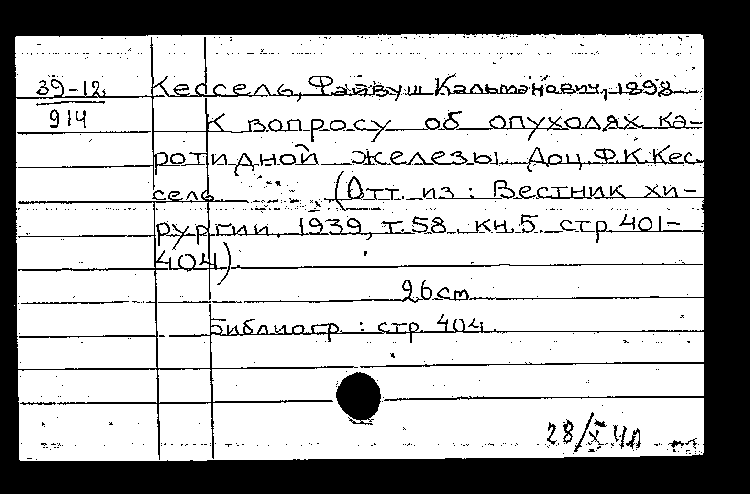 39-12 Кессель, Файвуш Кальманович, 1898
914
К вопросу об опухолях ка-
ротидной железы. Доц. Ф.К. Кес
сель (Отт. из: Вестник хи-
рургии, 1939, т.58. кн.5. стр. 401-
404).
26 cm
Библиогр: стр. 404.
28/X 40